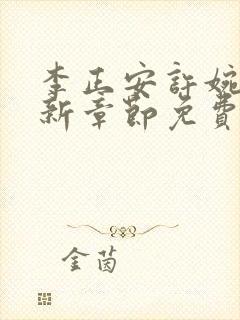 李正安許婉
新章節免費
金茵